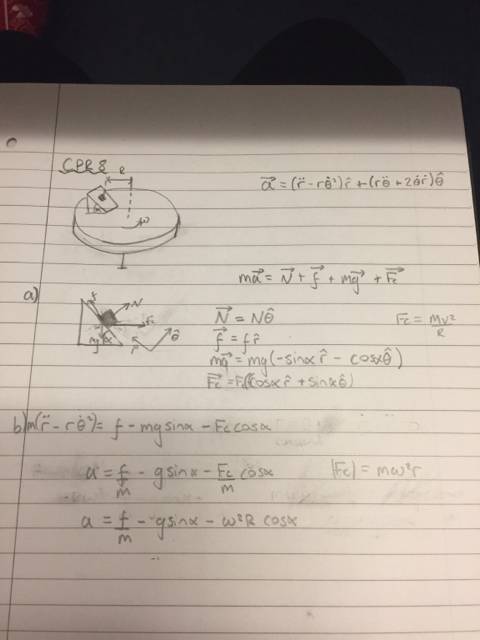 CPR 8
R
a⃗ = (r̈ - rθ̇²)r̂ + (rθ̈ + 2θ̇ṙ)θ̂
ω
ma⃗ = N⃗ + f⃗ + mg⃗ + F⃗c
a)
f
N
Fc
mg
α
θ̂
r̂
N⃗ = Nθ̂
Fc = mv²/R
f⃗ = f r̂
mg⃗ = mg(-sinα r̂ - cosα θ̂)
F⃗c = Fc(cosα r̂ + sinα θ̂)
b) m(r̈ - rθ̇²) = f - mg sinα - Fc cosα
a = f/m - g sinα - Fc/m cosα
|Fc| = mω²r
a = f/m - g sinα - ω²R cosα